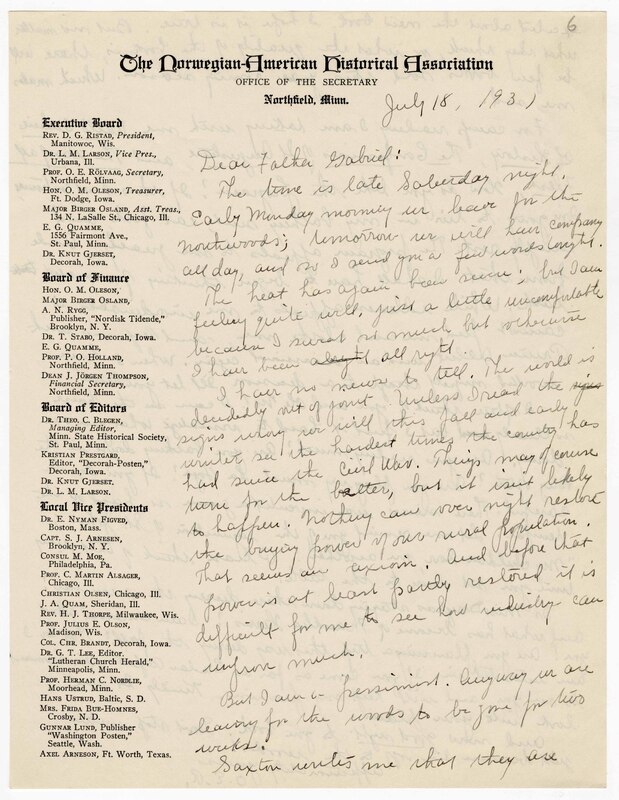 6
The Norwegian-American Historical Association
OFFICE OF THE SECRETARY
Northfield, Minn.
July 18, 1931
Executive Board
REV. D. G. RISTAD, President,
Manitowoc, Wis.
DR. L. M. LARSON, Vice Pres.,
Urbana, Ill.
PROF. O. E. RÖLVAAG, Secretary,
Northfield, Minn.
HON. O. M. OLESON, Treasurer,
Ft. Dodge, Iowa.
MAJOR BIRGER OSLAND, Asst. Treas.,
134 N. LaSalle St., Chicago, Ill.
E. G. QUAMME,
1556 Fairmont Ave.,
St. Paul, Minn.
DR. KNUT GJERSET,
Decorah, Iowa.
Board of Finance
HON. O. M. OLESON,
MAJOR BIRGER OSLAND,
A. N. RYGG,
Publisher, "Nordisk Tidende,"
Brooklyn, N. Y.
DR. T. STABO, Decorah, Iowa.
E. G. QUAMME,
PROF. P. O. HOLLAND,
Northfield, Minn.
DEAN J. JÖRGEN THOMPSON,
Financial Secretary,
Northfield, Minn.
Board of Editors
DR. THEO. C. BLEGEN,
Managing Editor,
Minn. State Historical Society,
St. Paul, Minn.
KRISTIAN PRESTGARD,
Editor, "Decorah-Posten,"
Decorah, Iowa.
DR. KNUT GJERSET.
DR. L. M. LARSON.
Local Vice Presidents
DR. E. NYMAN FIGVED,
Boston, Mass.
CAPT. S. J. ARNESEN,
Brooklyn, N. Y.
CONSUL M. MOE,
Philadelphia, Pa.
PROF. C. MARTIN ALSAGER,
Chicago, Ill.
CHRISTIAN OLSEN, Chicago, Ill.
J. A. QUAM, Sheridan, Ill.
REV. H. J. THORPE, Milwaukee, Wis.
PROF. JULIUS E. OLSON,
Madison, Wis.
COL. CHR. BRANDT, Decorah, Iowa.
DR. G. T. LEE, Editor.
"Lutheran Church Herald,"
Minneapolis, Minn.
PROF. HERMAN C. NORDLIE,
Moorhead, Minn.
HANS USTRUD, Baltic, S. D.
MRS. FRIDA BUE-HOMNES,
Crosby, N. D.
GUNNAR LUND, Publisher
"Washington Posten,"
Seattle, Wash.
AXEL ARNESON, Ft. Worth, Texas.
Dear Father Gabriel:
The time is late Saturday night.
Early Monday morning we leave for the
northwoods; tomorrow we will have company
all day, and so I send you a few words tonight.
The heat has again been severe; but I am
feeling quite well, just a little uncomfortable
because I sweat so much but otherwise
I have been alright all right.
I have no news to tell. The world is
decidedly out of joint. Unless I read the signs
signs wrong we will this fall and early
winter see the hardest times the country has
had since the Civil War. Things may of course
turn for the better, but it isn't likely
to happen. Nothing can over night restore
the buying power of our rural population.
That seems an axiom. And before that
power is at least partly restored it is
difficult for me to see how industry can
improve much.
But I am a pessimist. Anyway we are
leaving for the woods to be gone for two
weeks.
Saxton writes me that they are